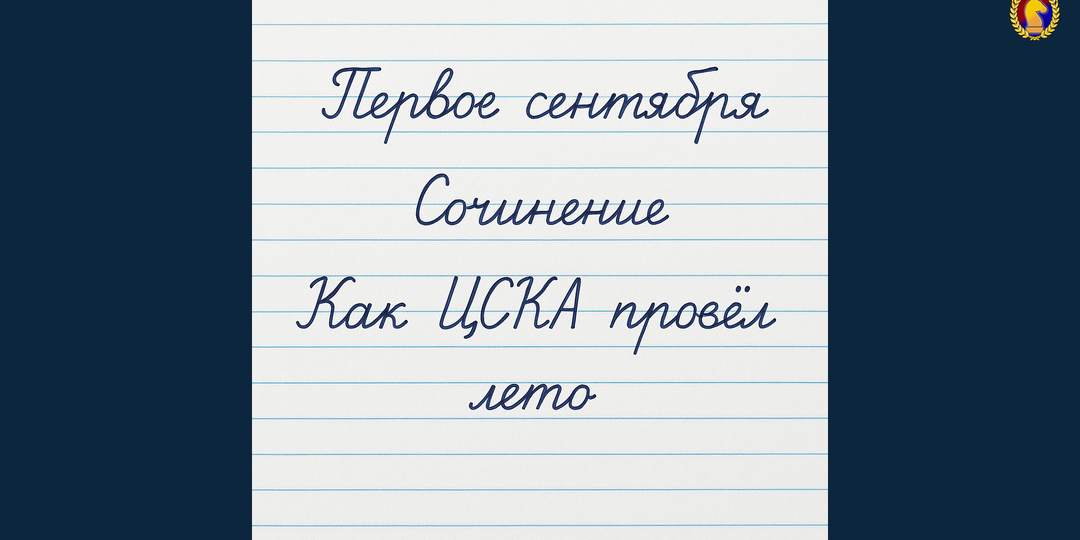 Первое сентября
Сочинение
Как ЦСКА провёл
лето